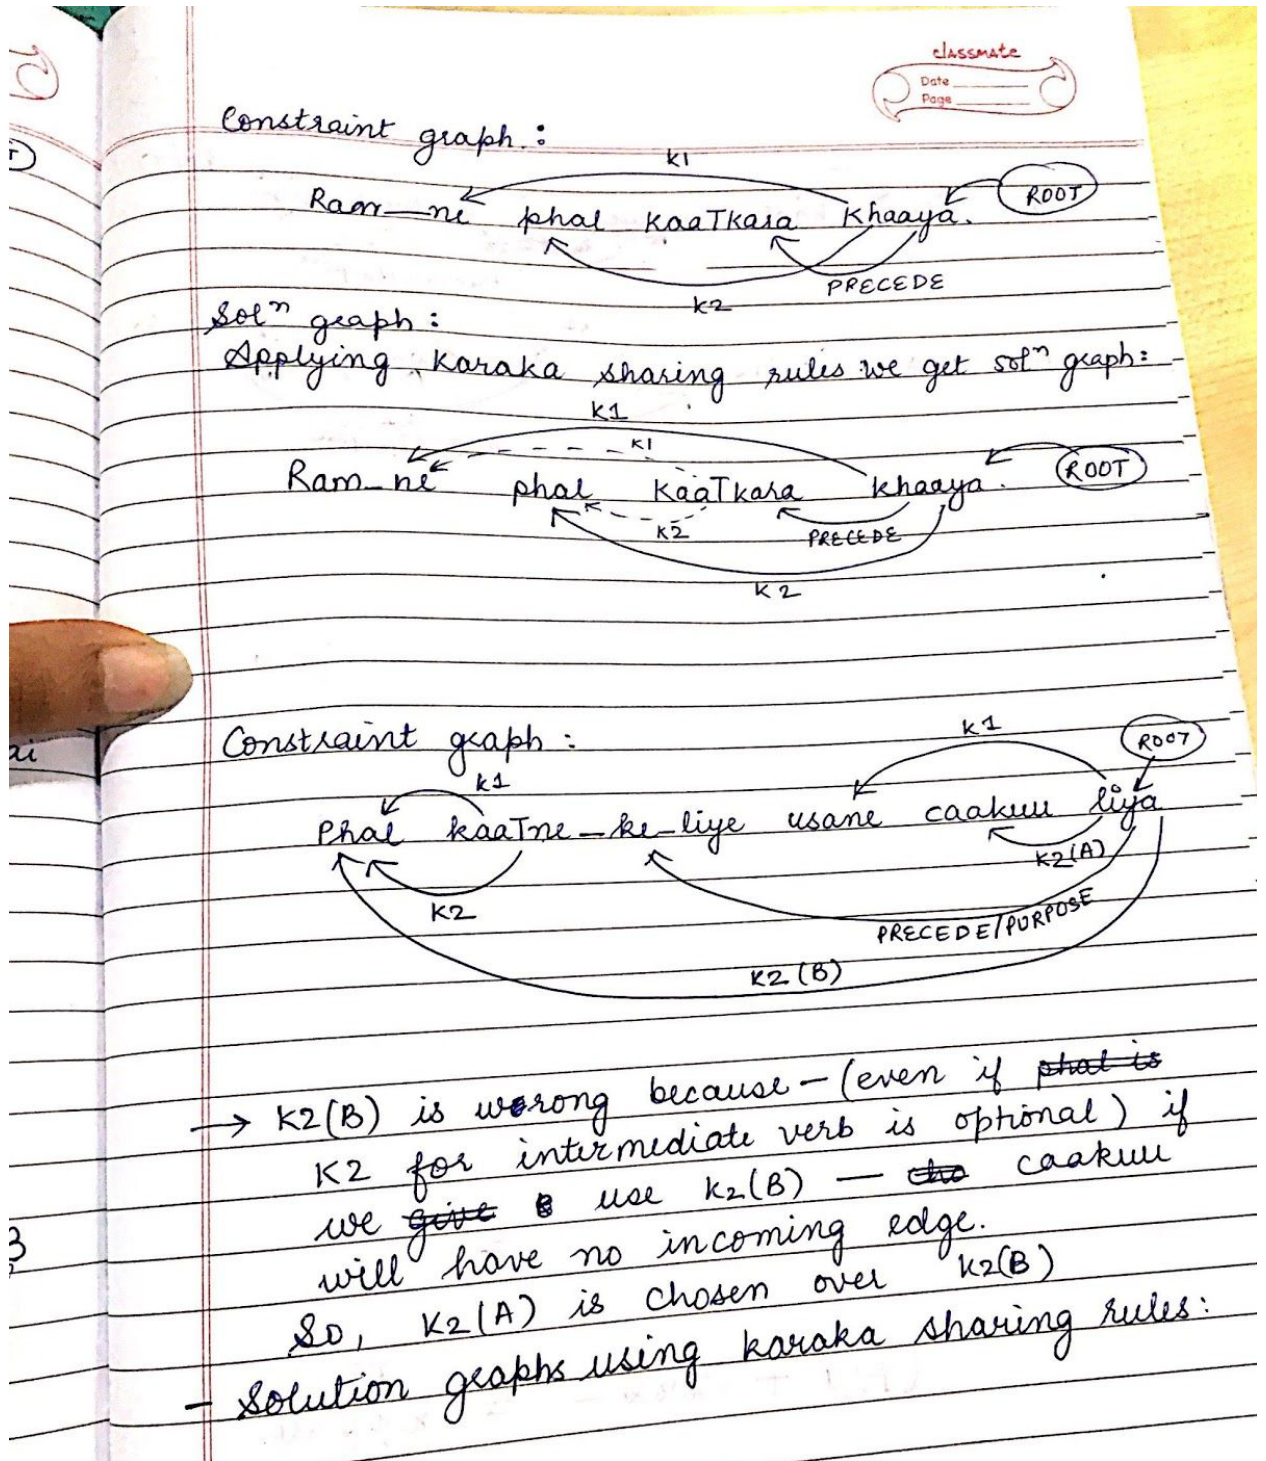 classmate
Date
Page
Constraint graph :
K1
Ram_ne phal kaaTkara khaaya. ROOT
PRECEDE
K2
Solⁿ graph :
Applying karaka sharing rules we get solⁿ graph:
K1
K1
Ram_ne phal kaaTkara khaaya. ROOT
K2 PRECEDE
K2
ai
Constraint graph :
K1 ROOT
K1
Phal kaaTne_ke_liye usane caakuu liya
K2(A)
K2
PRECEDE/PURPOSE
K2 (B)
→ K2(B) is wrong because – (even if phal is
K2 for intermediate verb is optional) if
we give use K2(B) — cha caakuu
will have no incoming edge.
So, K2(A) is chosen over K2(B)
- Solution graphs using karaka sharing rules: